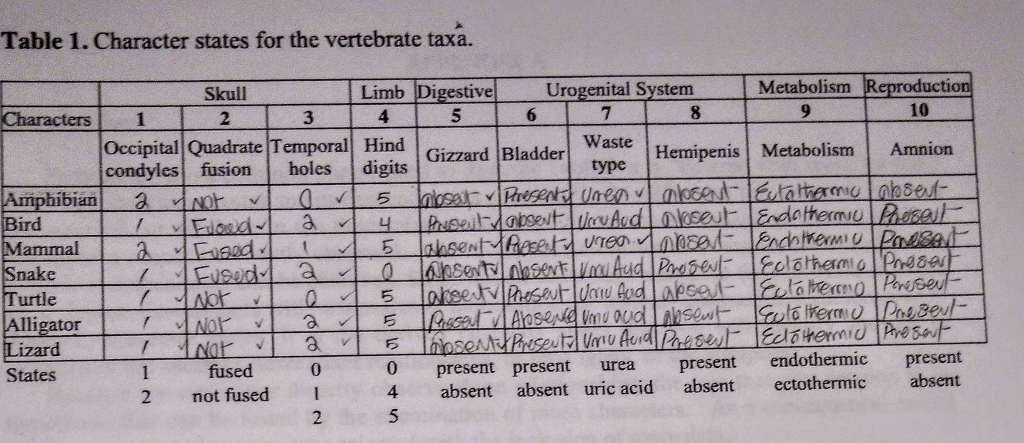 Table 1. Character states for the vertebrate taxa.
Skull Limb Digestive Urogenital System Metabolism Reproduction
Characters 1 2 3 4 5 6 7 8 9 10
Occipital condyles Quadrate fusion Temporal holes Hind digits Gizzard Bladder Waste type Hemipenis Metabolism Amnion
Amphibian 2 ✓ Not ✓ 0 ✓ 5 absent ✓ Present ✓ Urea ✓ absent Ectothermic absent
Bird 1 ✓ Fused ✓ 2 ✓ 4 Present ✓ absent Uric Acid absent Endothermic Present
Mammal 2 ✓ Fused ✓ 1 ✓ 5 absent ✓ Present ✓ urea ✓ absent Endothermic Present
Snake 1 ✓ Fused ✓ 2 ✓ 0 Absent ✓ absent Uric Acid Present Ectothermic Present
Turtle 1 ✓ Not ✓ 0 ✓ 5 absent ✓ Present Uric Acid absent Ectothermic Present
Alligator 1 ✓ Not ✓ 2 ✓ 5 Present ✓ Absence Uric acid absent Ectothermic Present
Lizard 1 ✓ Not ✓ 2 ✓ 5 absent ✓ Present ✓ Uric Acid Present Ectothermic Present
States 1 fused 0 0 present present urea present endothermic present
2 not fused 1 4 absent absent uric acid absent ectothermic absent
2 5